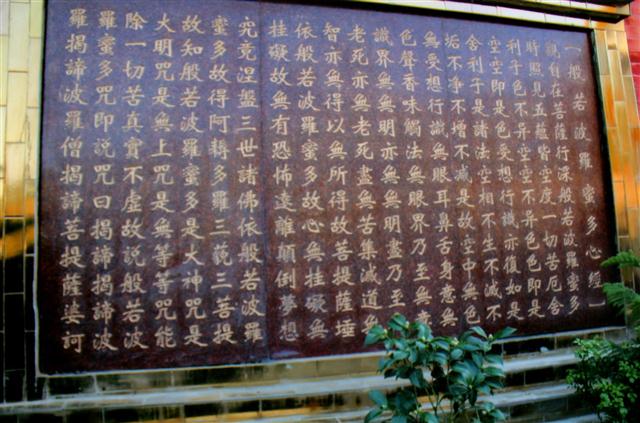 一般若波羅蜜多心經一
觀自在菩薩行深般若波羅蜜多
時照見五蘊皆空度一切苦厄舍
利子色不異空空不異色色即是
空空即是色受想行識亦復如是
舍利子是諸法空相不生不滅不
垢不淨不增不減是故空中無色
無受想行識無眼耳鼻舌身意無
色聲香味觸法無眼界乃至無意
識界無無明亦無無明盡乃至無
老死亦無老死盡無苦集滅道無
智亦無得以無所得故菩提薩埵
依般若波羅蜜多故心無挂礙無
挂礙故無有恐怖遠離顛倒夢想
究竟涅盤三世諸佛依般若波羅
蜜多故得阿耨多羅三藐三菩提
故知般若波羅蜜多是大神咒是
大明咒是無上咒是無等等咒能
除一切苦真實不虛故說般若波
羅蜜多咒即說咒曰揭諦揭諦波
羅揭諦波羅僧揭諦菩提薩婆訶